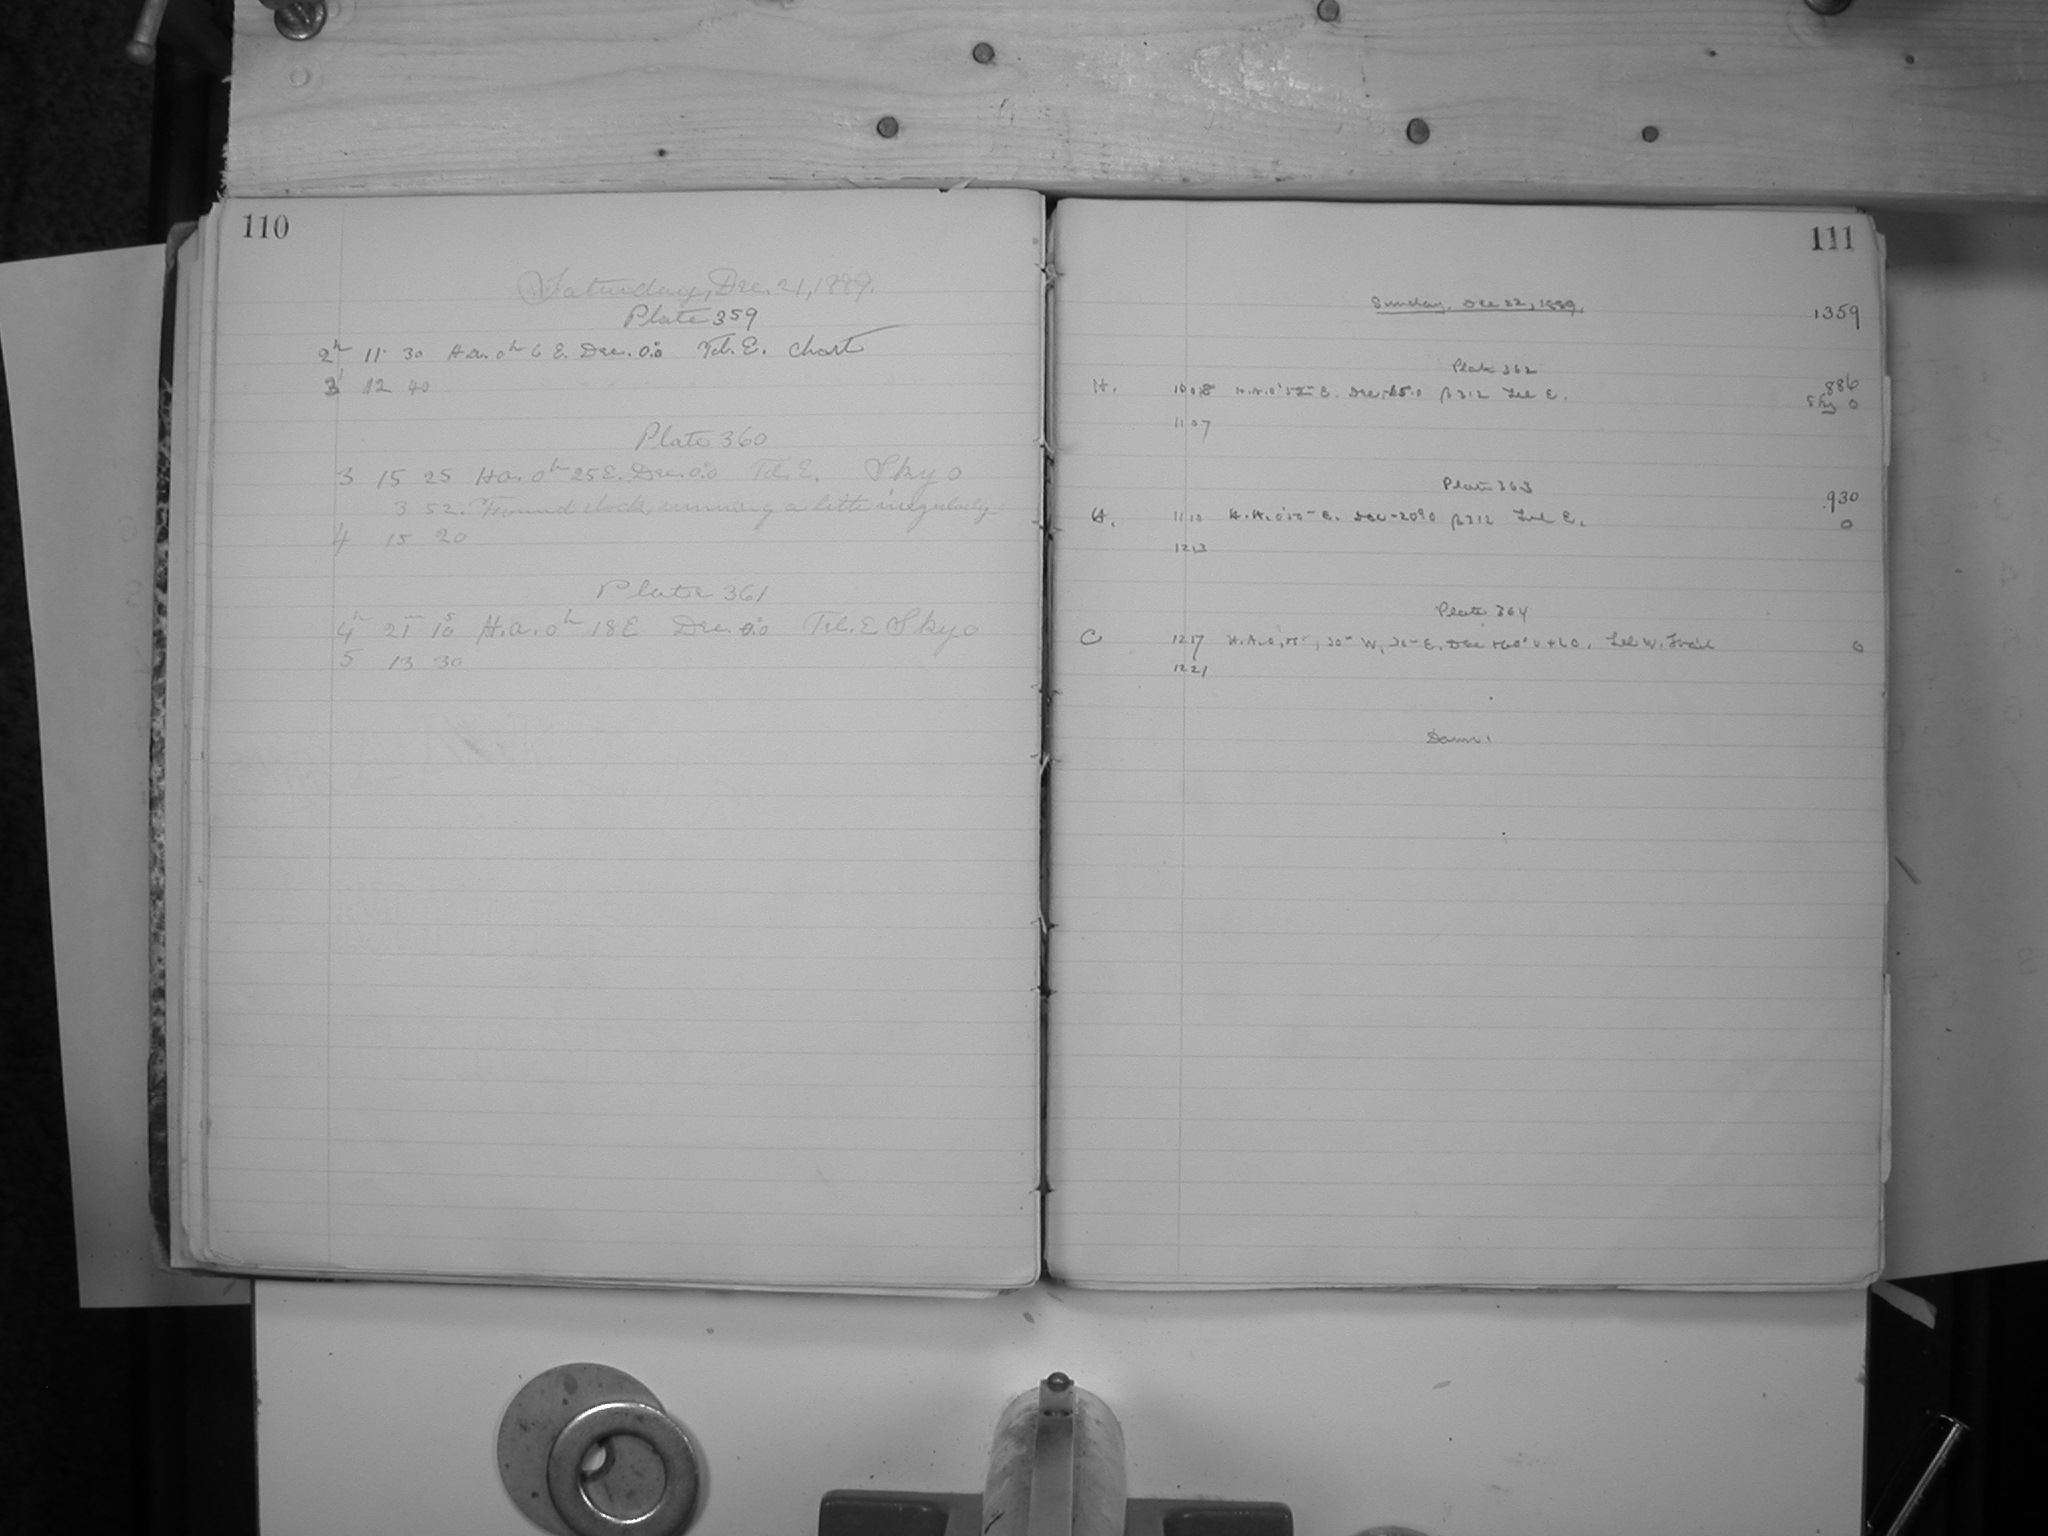 110
Saturday, Dec. 21, 1889.
Plate 359
2h 11 30 H.a. 0h 6 E. Dec. 0.°0 Tel. E. Chart
3 12 40
Plate 360
3 15 25 H.a. 0h 25 E. Dec. 0.°0 Tel. E. Sky 0
3 52. Found clock running a little irregularly
4 15 20
Plate 361
4h 21m 10s H.a. 0h 18 E Dec. 0.°0 Tel. E Sky 0
5 13 30
111
Sunday, Dec 22, 1889.
1359
Plate 362
.886
H. 1008 H.A. E. Dec. β 312 Tel E.
Sky 0
1107
Plate 363
.930
H. 1110 H.A. E. Dec -20°0 β 312 Tel E.
0
1213
Plate 364
C 1217 H.A. W, E. Dec +60° U + L C. Tel W. Trail 0
1221
Dawn.